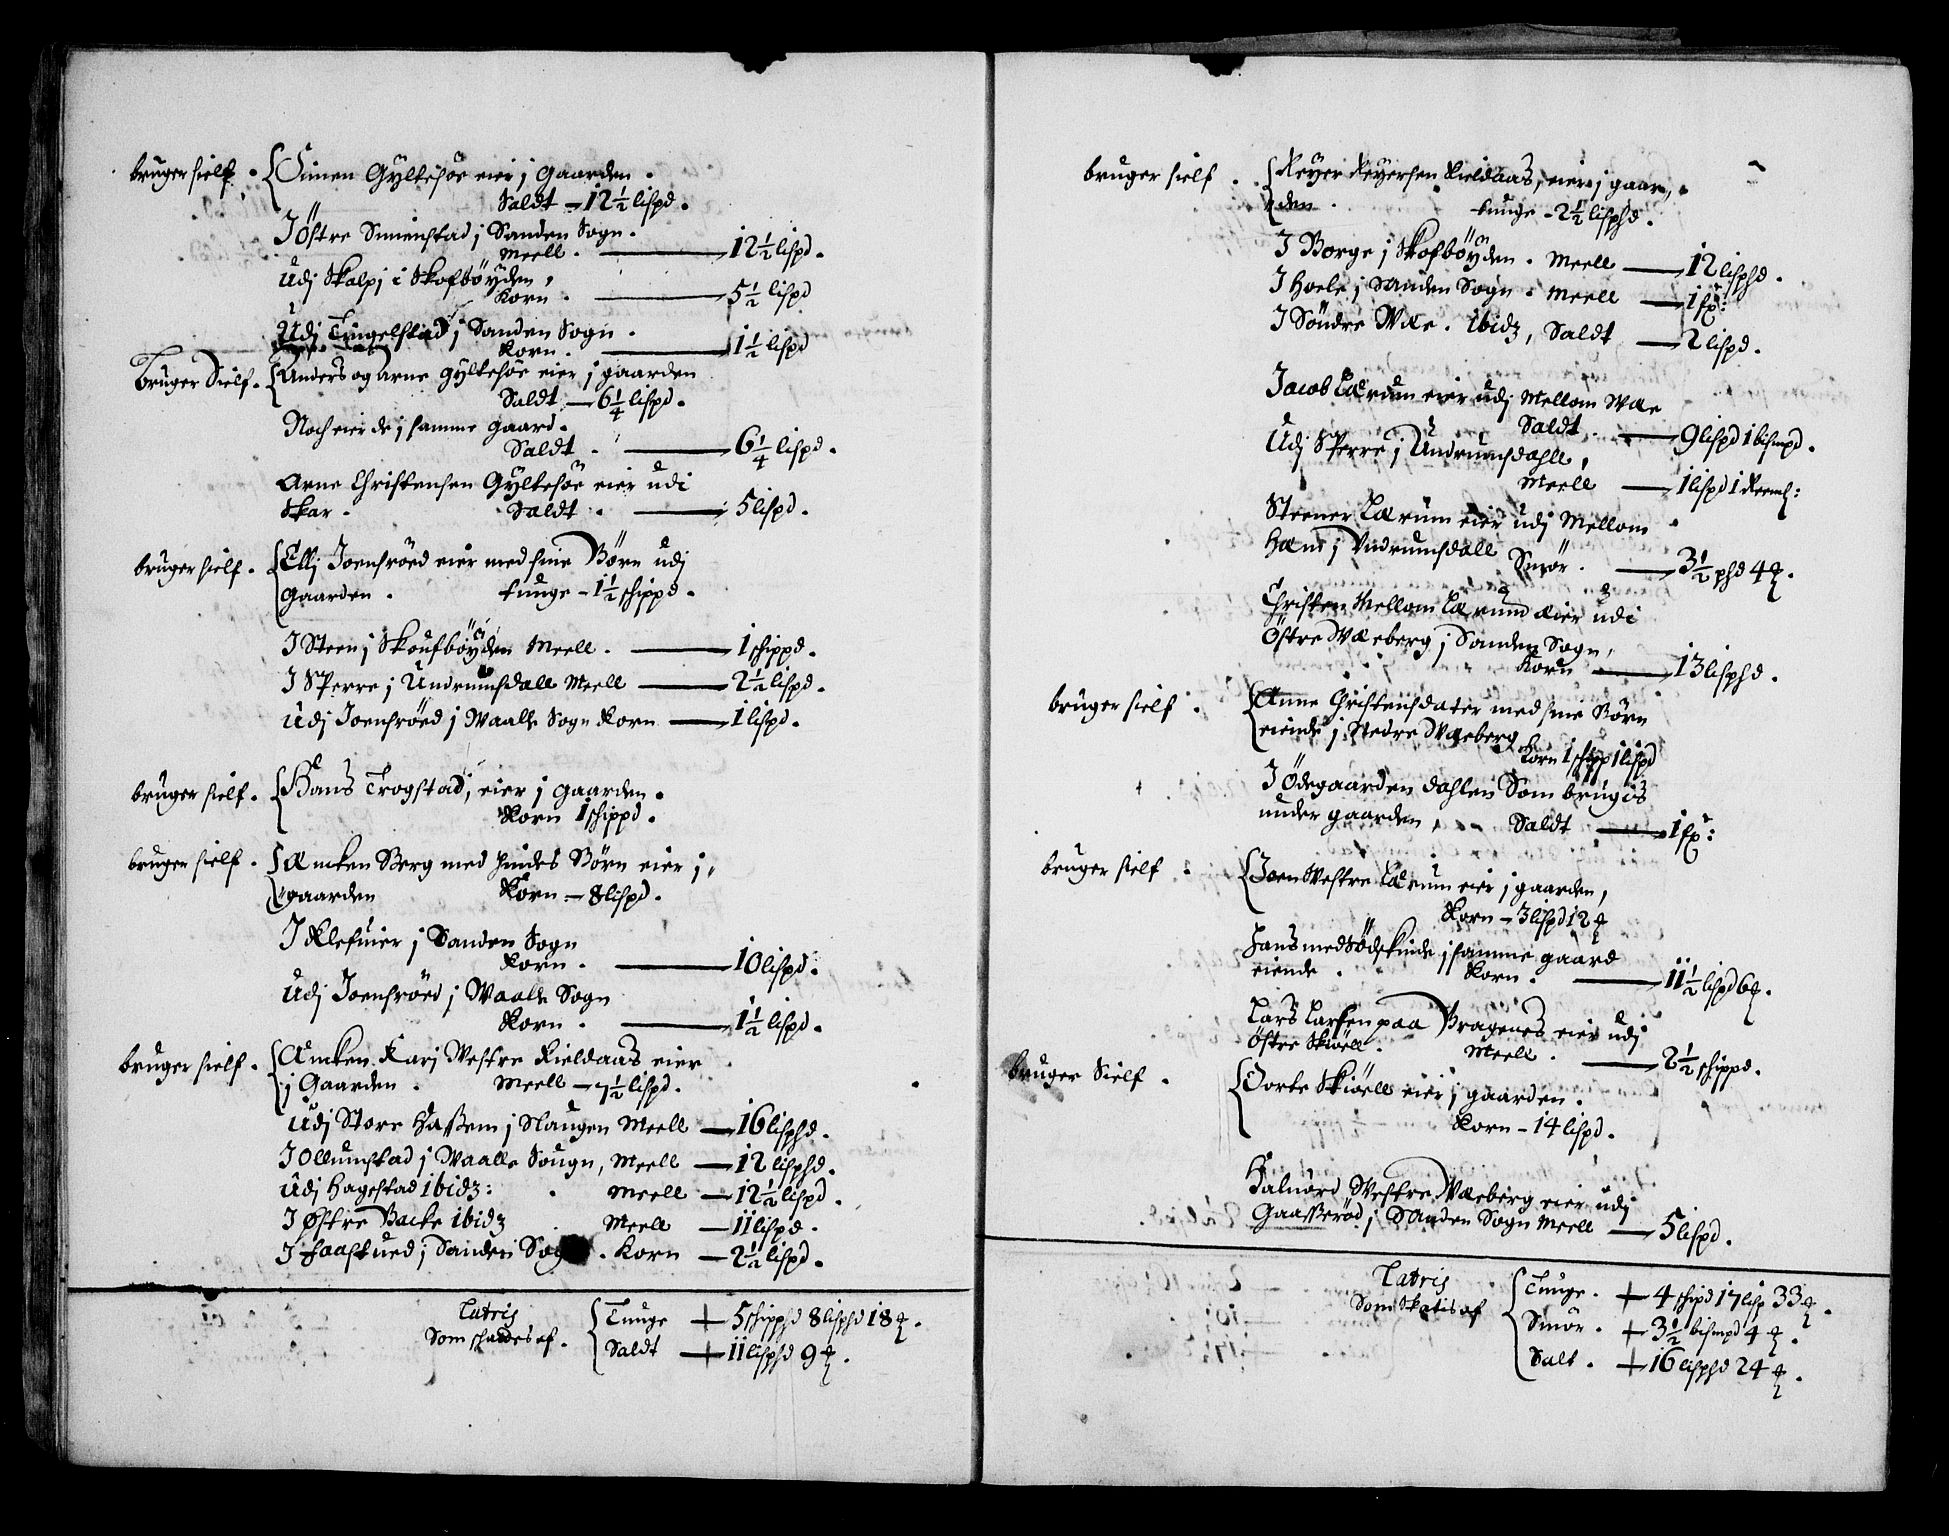 bruger sielf. Simen Gyltesöe eier j Gaarden.
Saldt – 12½ lispd.
J östre Simenstad j Sanden Sogn.
Meell. — 12½ lispd.
Udj Skalpj i Skofböyden,
Korn. — 5½ lispd
Udj Tingelstad j Sanden Sogn.
Korn. — 1½ lispd
Bruger Sielf. Anders og Arne Gyltesöe eier j gaarden
Saldt — 6¼ lispd.
Noch eier de j samme gaard.
Saldt. — 6¼ lispd.
Arne Christensen Gyltesöe eier udi
Skar. Saldt. — 5 lispd.
bruger sielf. Ellj Joensröed eier med sine Børn udj
Gaarden. tunge – 1½ schippd.
J Steen j Skoufböyden Meell. — 1 schippd.
J Sperre j Undrumsdall Meell — 2½ lispd.
Udj Joensröed j Waalle Sogn Korn — 1 lispd.
bruger sielf. Hans Trogstad, eier j gaarden.
Korn 1 schippd.
bruger sielf. Æncken Berg med hindes Børn eier j
gaarden Korn – 8 lispd.
J Klefuier j Sanden Sogn
Korn. — 10 lispd.
Udj Joensröed j Waalle Sogn
Korn. — 1½ lispd.
bruger sielf. Æncken Karj Westre Kieldaas eier
j Gaarden. Meell – 7½ lispd.
Udj Store Hassem j Slaugen Meell — 16 lisphd.
J Ollumstad j Waalle Sougn, Meell — 12 lisphd.
Udj Hagestad ibidz: Meell — 12½ lispd.
J Østre Backe ibidz Meell — 11 lispd.
J Faastued j Sanden Sogn. Korn — 2½ lispd.
Latris
Som schades af.
Tunge + 5 schipphd 8 lisphd 18 ℔.
Saldt + 11 lisphd 9 ℔.
bruger sielf. Reyer Reyersen Kieldaas, eier j gaar,
den. tunge – 2½ lisphd.
J Borge j Skofböyden. Meell — 12 lisphd.
J Hoele j Sanden Sogn. Meell — 1 fr:
J Söndre Wæe. ibidz, Saldt — 2 lispd.
Jacob Lærum eier udj Mellom Wæe
Saldt. — 9 lispd 1 bismpd.
Udj Sperre j Undrumsdahll,
Meell — 1 lispd 1 Reml:
Steener Lærum eier udj Mellom
Hæm j Undrumsdall Smör. — 3½ phd 4 ℔.
Christen Mellom Lærum æier udi
Östre Wæeberg j Sanden Sogn,
Korn — 13 lisphd.
bruger sielf. Anne Christensdater med sine Börn
eiende j Nedre Wæeberg
Korn 1 schipp 1 lispd
J Ödegaarden dahlen Som brugis
under gaarden, Saldt — 1 fr:
bruger sielf. Joen Westre Lærum eier j gaarden,
Korn – 3 lispd 12 ℔
Hans med Södskinde j samme gaard
eiende. Korn. — 11½ lispd 6 ℔.
Lars Larsen paa Bragenes eier udj
Östre Skiöell. Meell. — 2½ schippd.
bruger Sielf. Dorte Skiöell eier j gaarden.
Korn – 14 lispd.
Haluörd Westre Wæeberg eier udj
Gaasseröd j Sanden Sogn Meell — 5 lispd.
Latris
Som Skatis af
Tunge. + 4 schipd 17 lisp 33 ℔.
Smör. + 3½ bismpd 4 ℔.
Salt. + 16 lisphd 24 ℔.